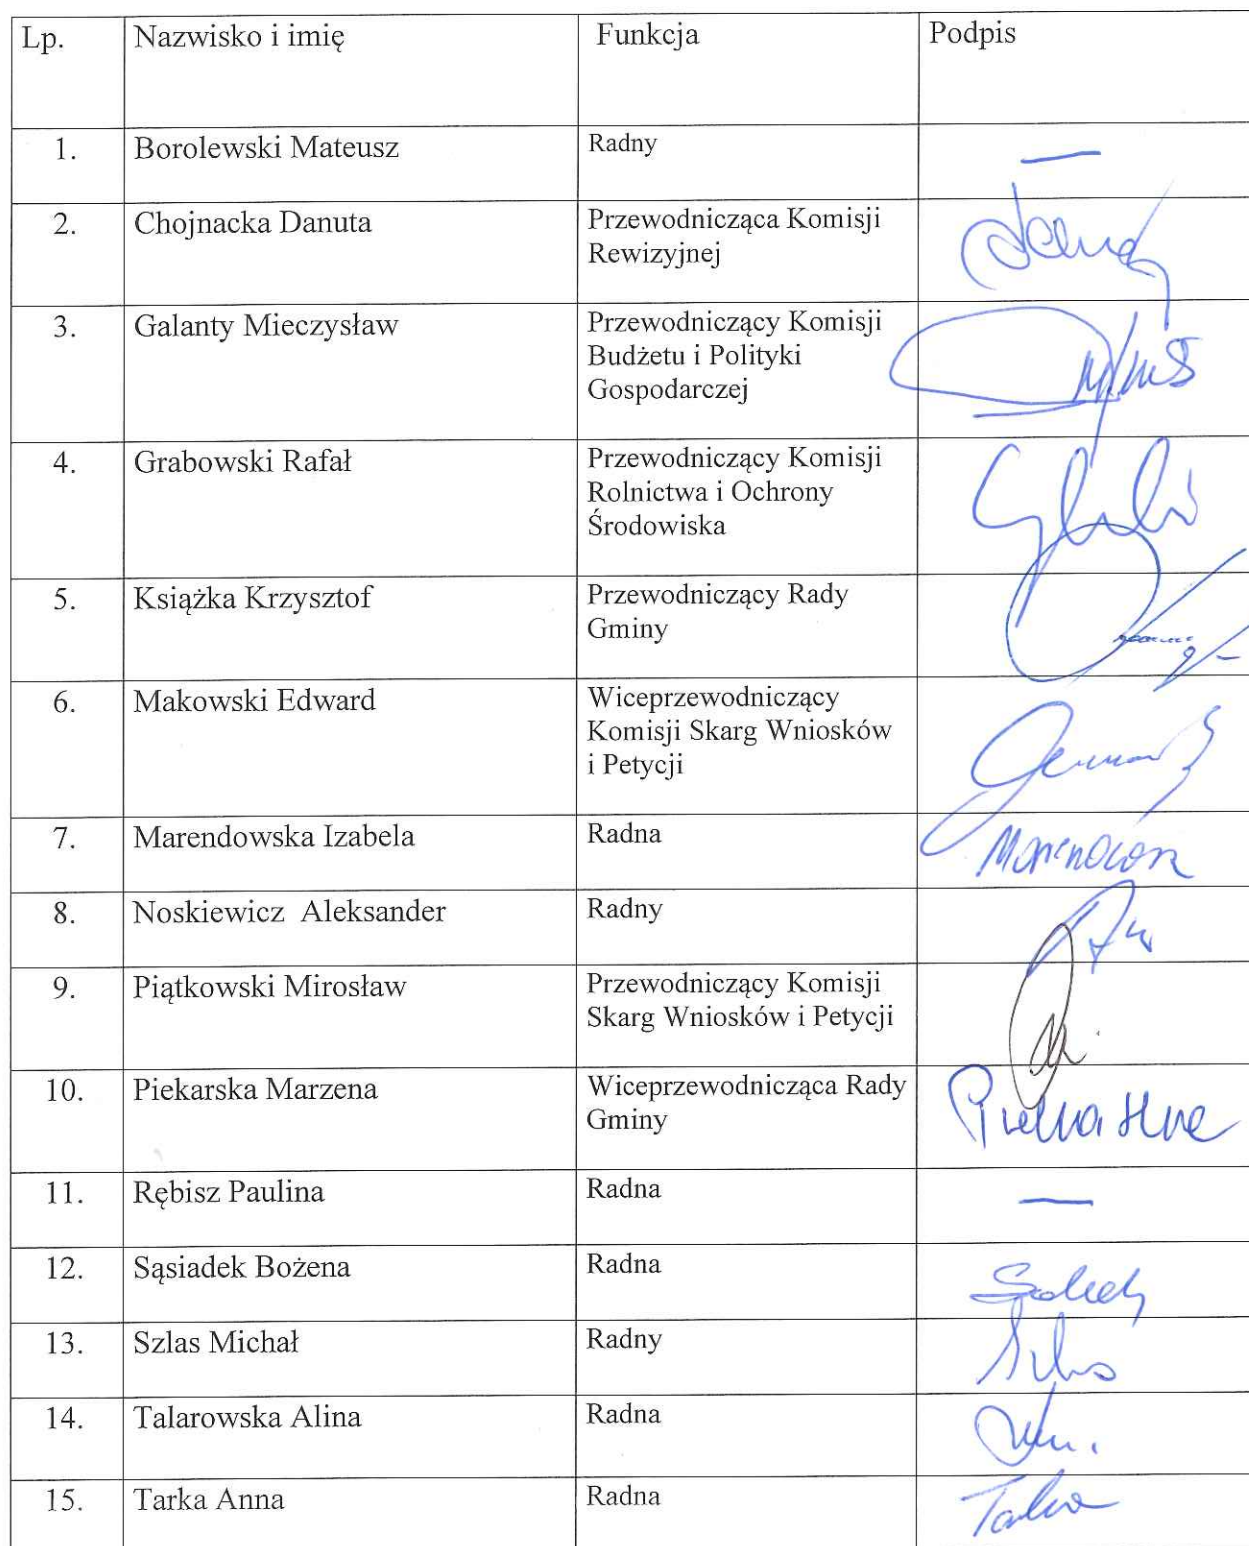 Lp. Nazwisko i imię Funkcja Podpis
1. Borolewski Mateusz Radny —
2. Chojnacka Danuta Przewodnicząca Komisji
Rewizyjnej
3. Galanty Mieczysław Przewodniczący Komisji
Budżetu i Polityki
Gospodarczej
4. Grabowski Rafał Przewodniczący Komisji
Rolnictwa i Ochrony
Środowiska
5. Książka Krzysztof Przewodniczący Rady
Gminy
6. Makowski Edward Wiceprzewodniczący
Komisji Skarg Wniosków
i Petycji
7. Marendowska Izabela Radna
8. Noskiewicz Aleksander Radny
9. Piątkowski Mirosław Przewodniczący Komisji
Skarg Wniosków i Petycji
10. Piekarska Marzena Wiceprzewodnicząca Rady
Gminy
11. Rębisz Paulina Radna —
12. Sąsiadek Bożena Radna
13. Szlas Michał Radny
14. Talarowska Alina Radna
15. Tarka Anna Radna